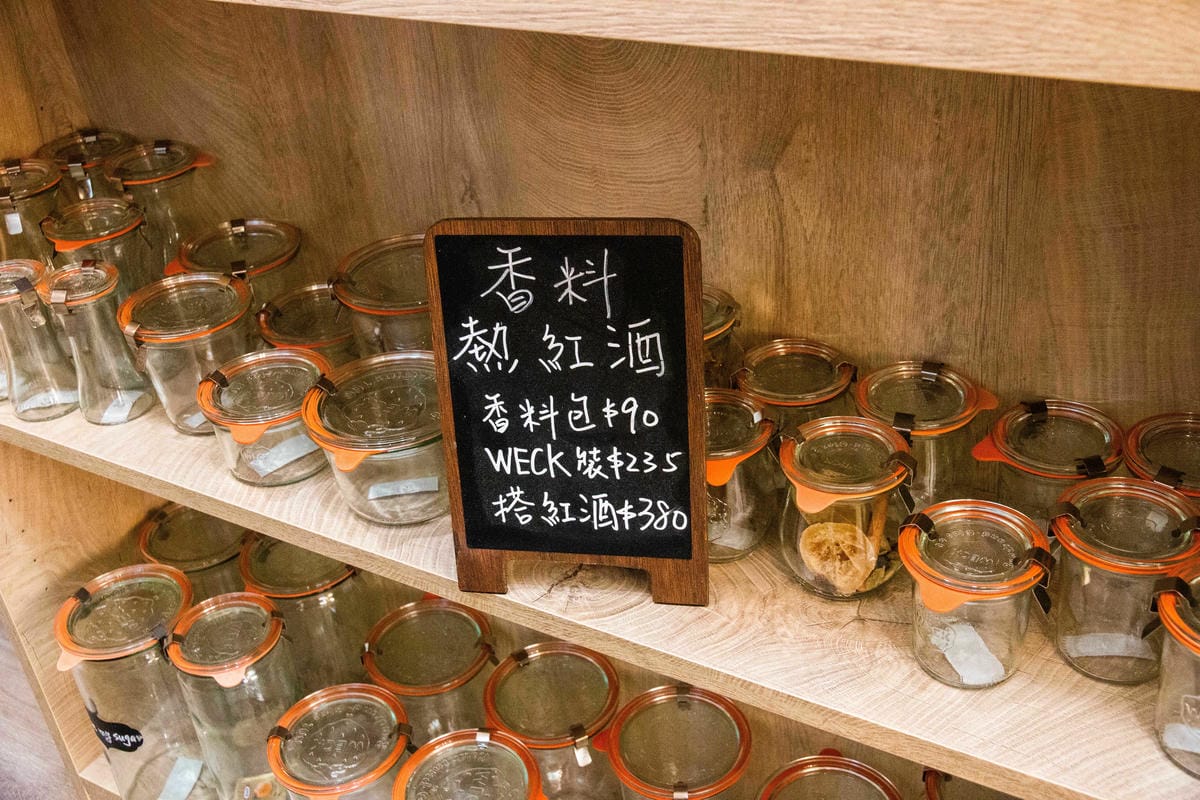 香料
熱紅酒
香料包$90
WECK裝$235
搭紅酒$380
sugar